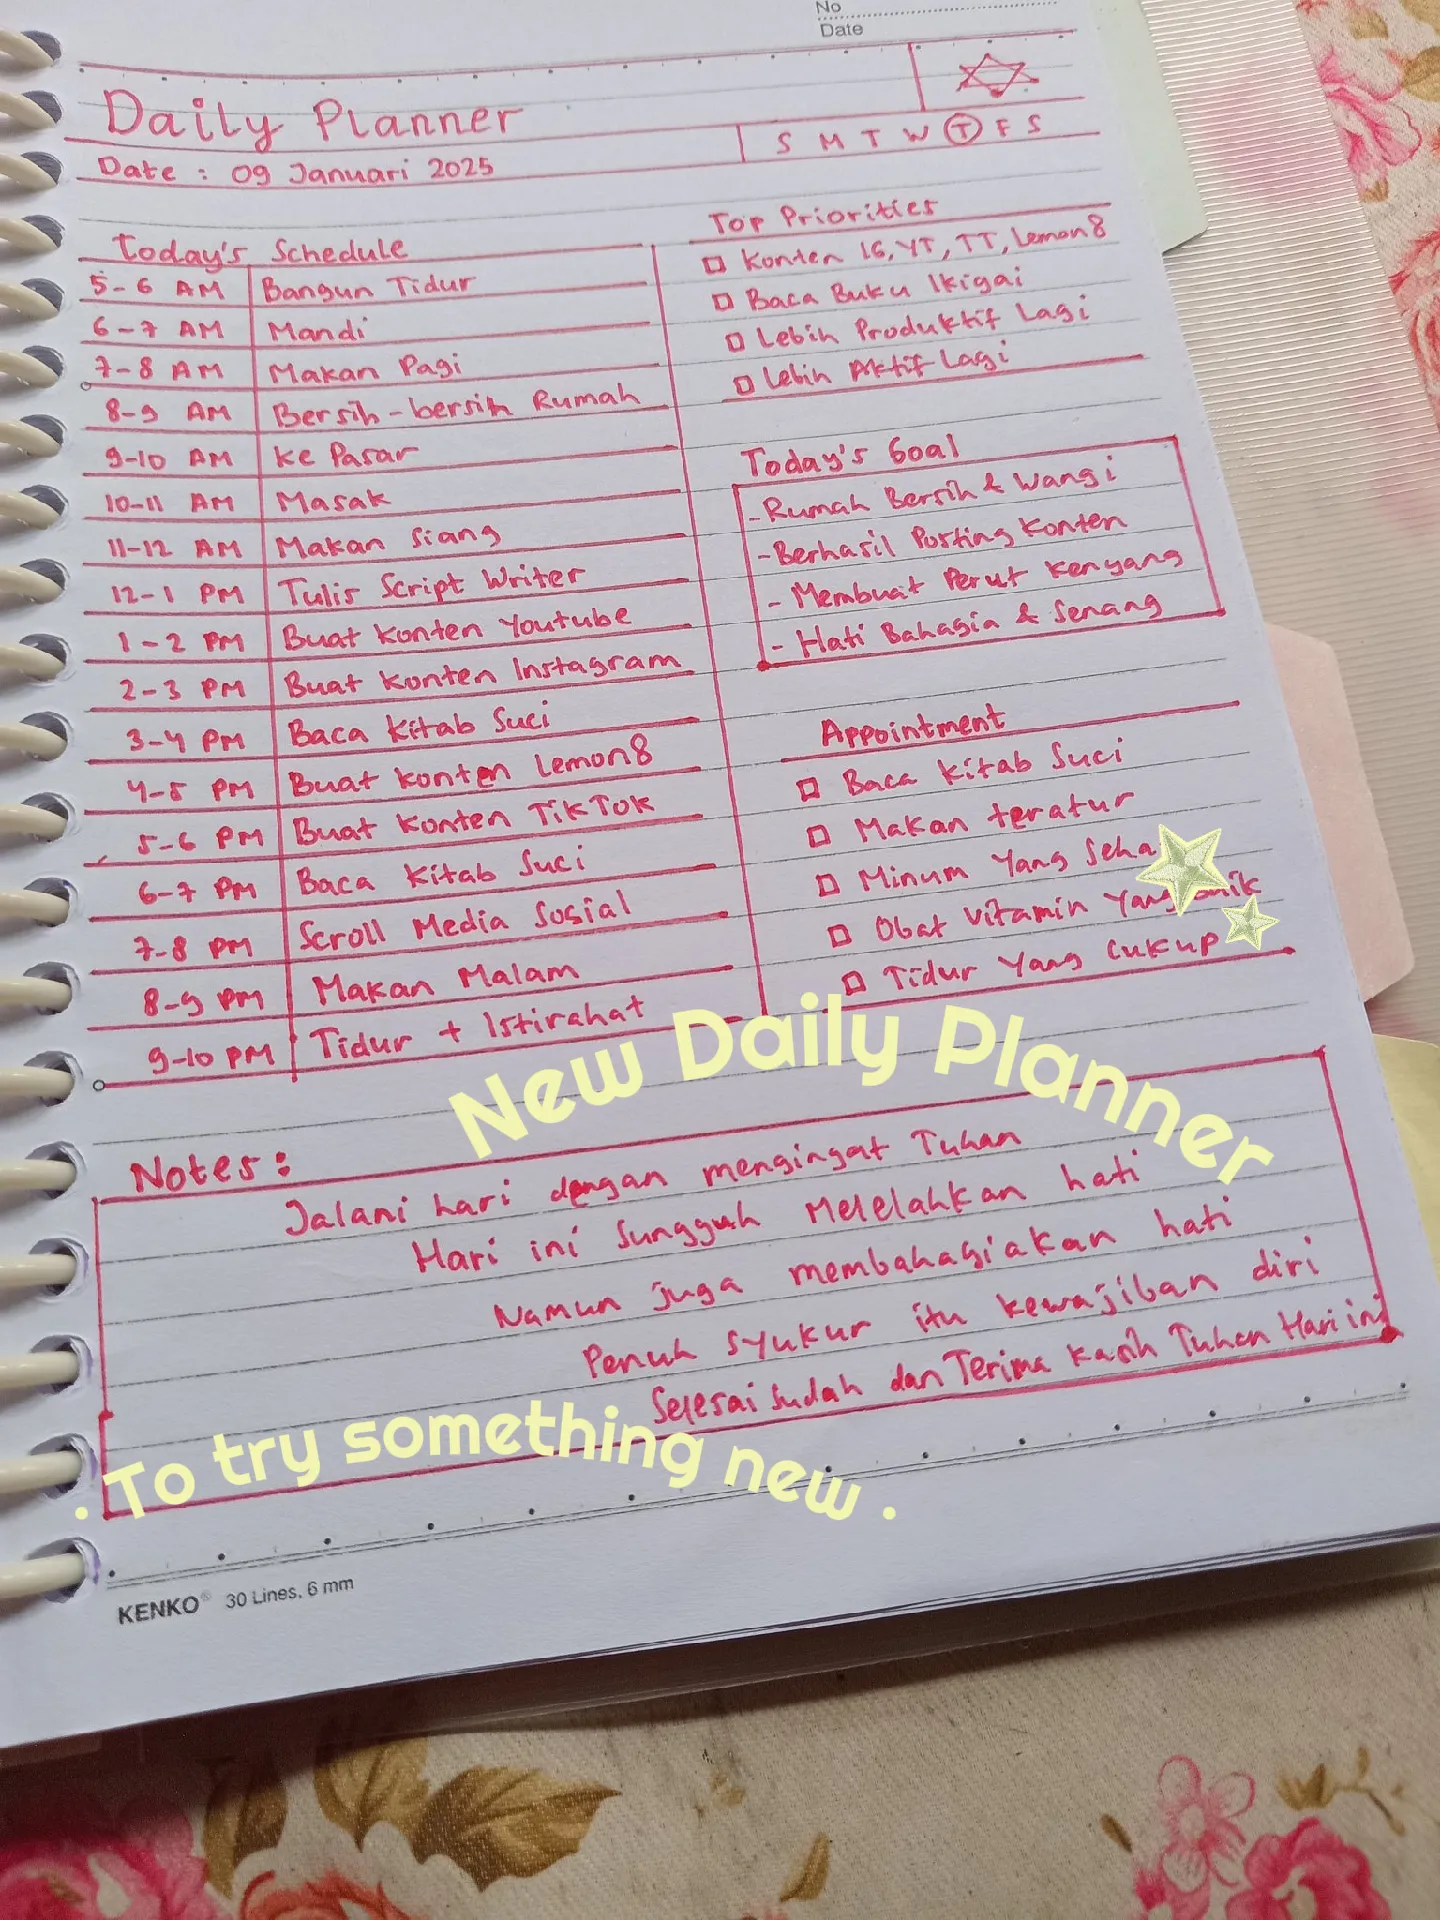 No
Date
Daily Planner
S M T W T F S
Date : 09 Januari 2025
Today's Schedule
5-6 AM Bangun Tidur
6-7 AM Mandi
7-8 AM Makan Pagi
8-9 AM Bersih-bersih Rumah
9-10 AM Ke Pasar
10-11 AM Masak
11-12 AM Makan Siang
12-1 PM Tulis Script Writer
1-2 PM Buat Konten Youtube
2-3 PM Buat Konten Instagram
3-4 PM Baca Kitab Suci
4-5 PM Buat Konten Lemon8
5-6 PM Buat Konten TikTok
6-7 PM Baca Kitab Suci
7-8 PM Scroll Media Sosial
8-9 PM Makan Malam
9-10 PM Tidur + Istirahat
Top Priorities
Konten IG, YT, TT, Lemon8
Baca Buku Ikigai
Lebih Produktif Lagi
Lebih Aktif Lagi
Today's Goal
- Rumah Bersih & Wangi
- Berhasil Posting Konten
- Membuat Perut Kenyang
- Hati Bahagia & Senang
Appointment
Baca Kitab Suci
Makan teratur
Minum Yang
Obat Vitamin Yang
Tidur Yang Cukup
New Daily Planner
Notes:
Jalani hari dengan mengingat Tuhan
Hari ini Sungguh Melelahkan hati
Namun juga membahagiakan hati
Penuh syukur itu kewajiban diri
Selesai Sudah dan Terima Kasih Tuhan Hari ini
· To try something new ·
KENKO® 30 Lines. 6 mm